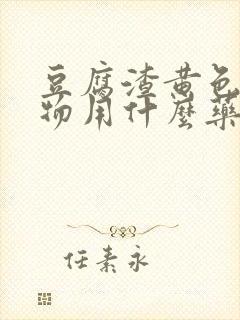 豆腐渣黄色
物用什麼藥
任素永